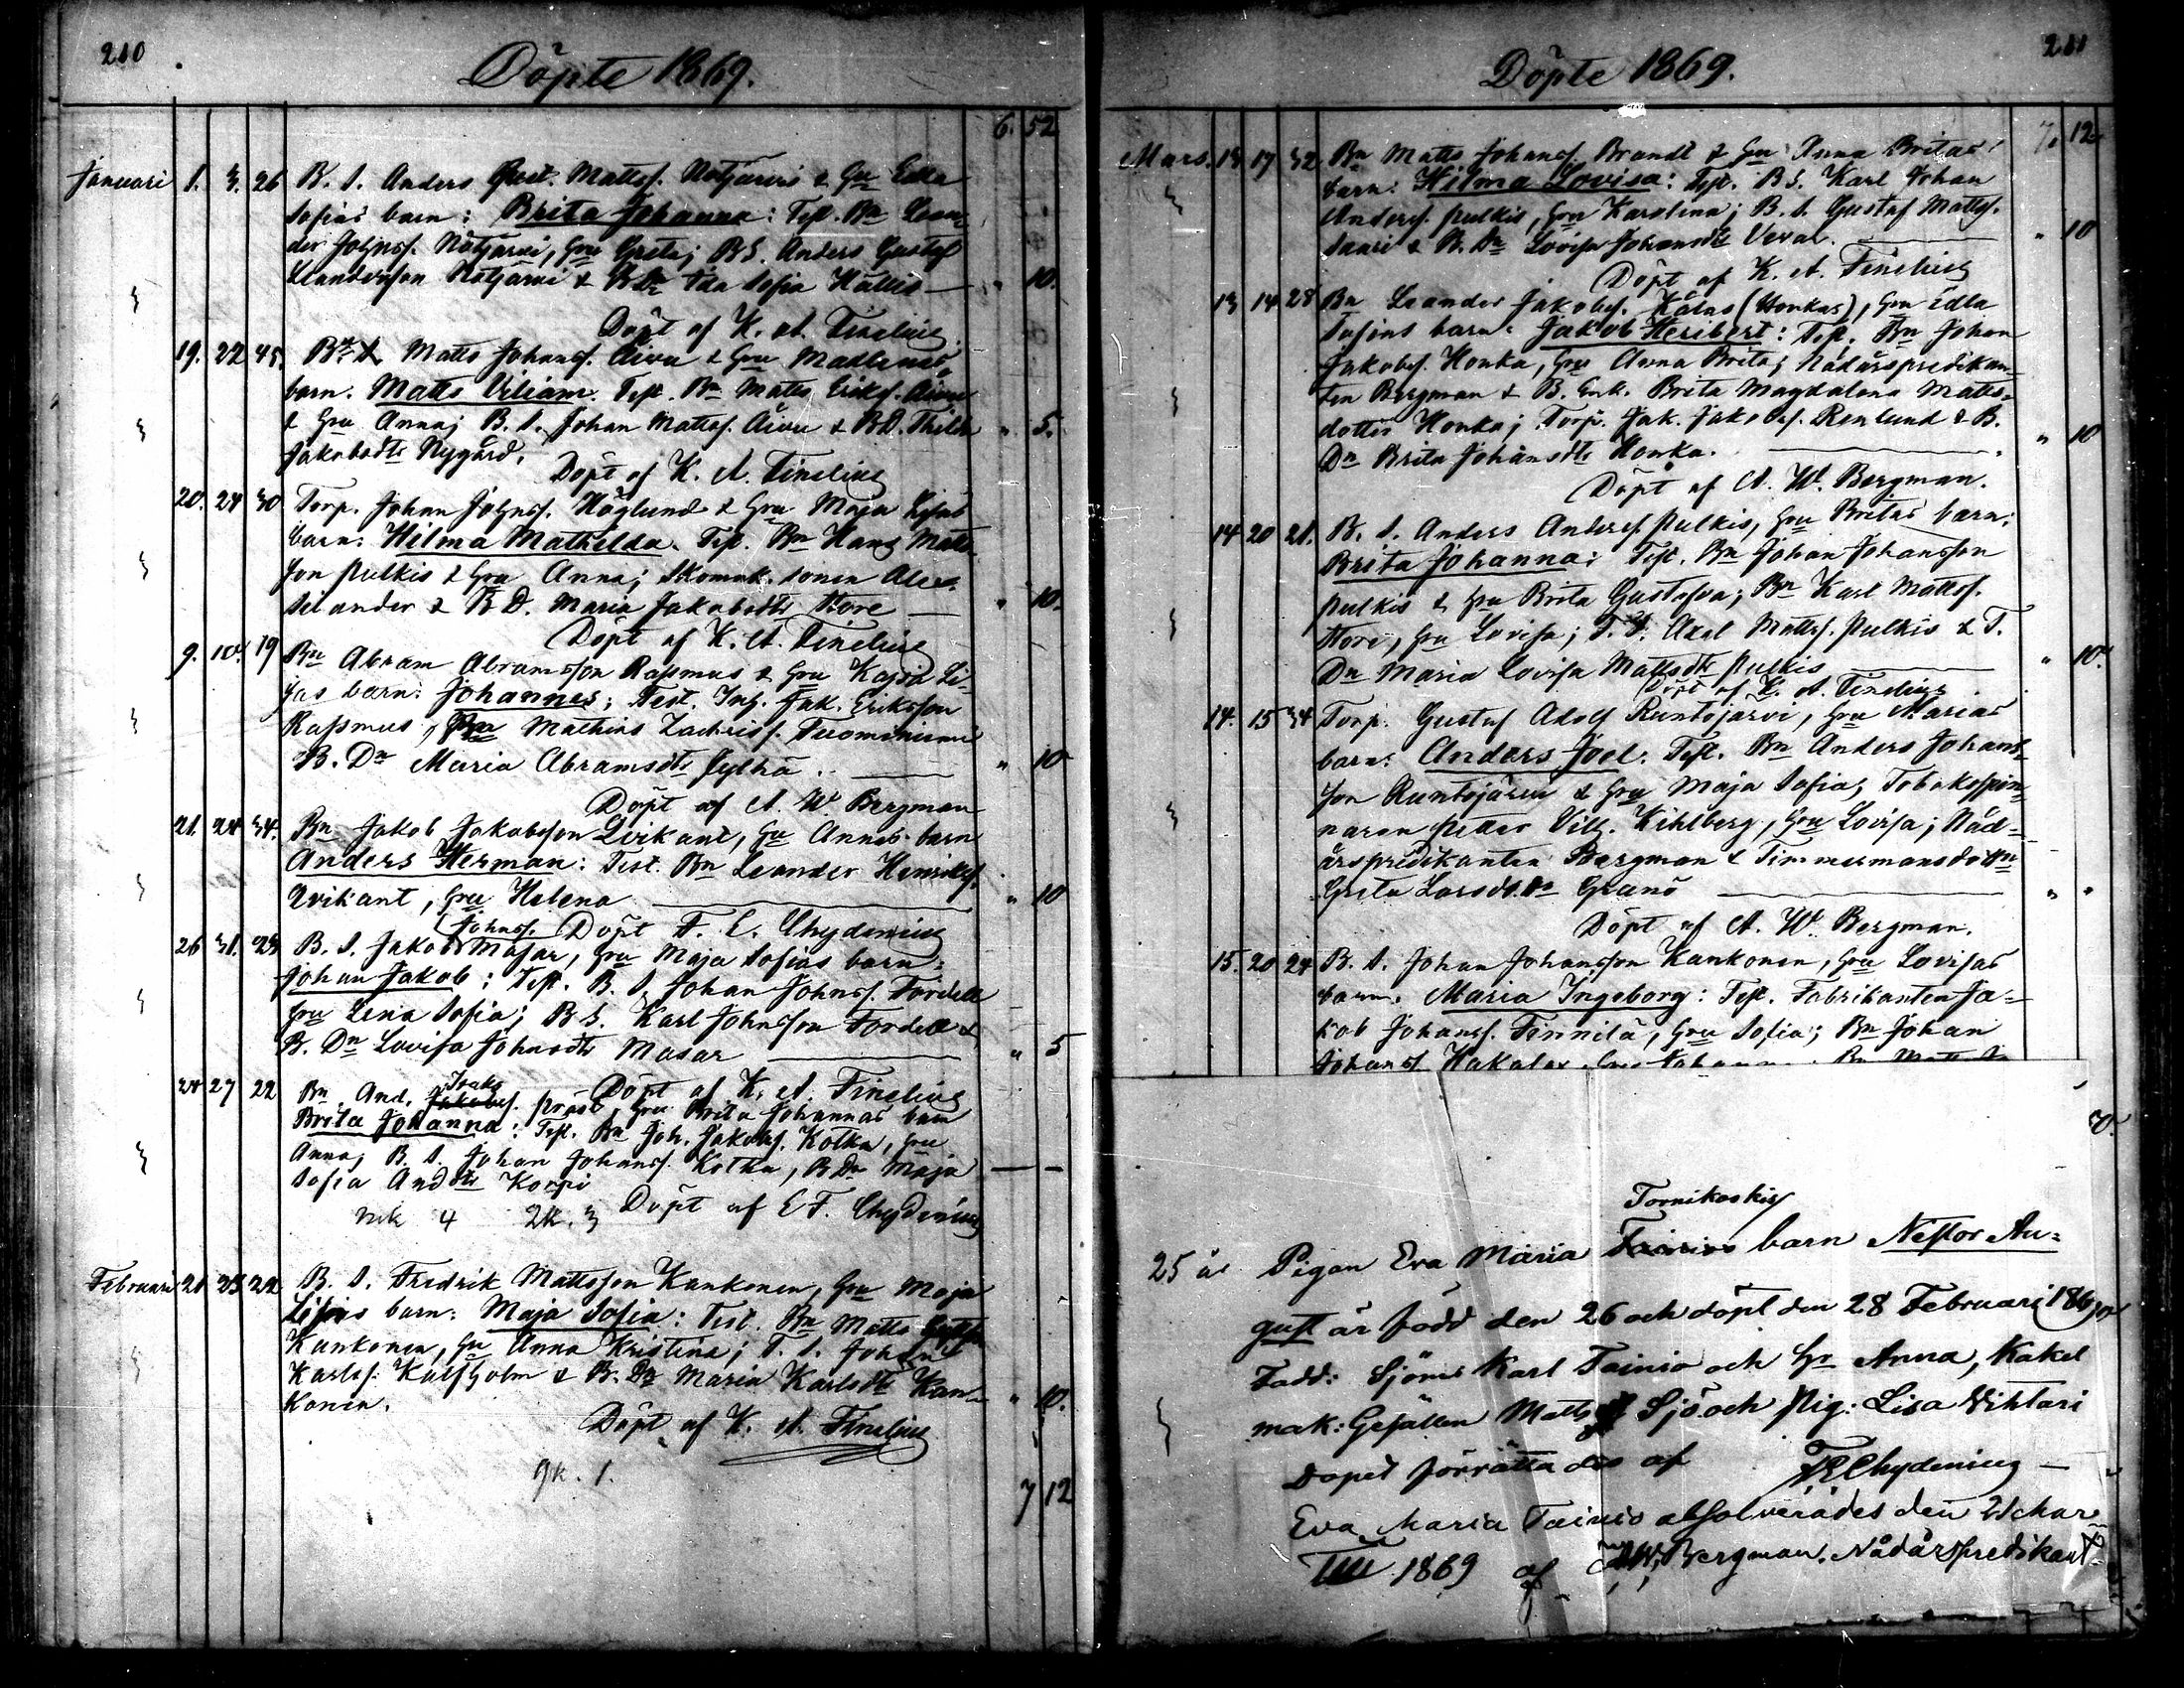 210
Döpte 1869.
6. 52
Januari 1. 3. 26 B. S. Anders Gust. Mattss. Nätjärvi & Hu Edla
Sofias barn: Brita Johanna: Test. Bn Lean-
der Johnss. Nätjärvi, Hu Greta; B S. Anders Gustaf
Leandersson Nätjärvi & B Dr Ida Sofia " 10.
Döpt af K. A. Finelius
19. 22 45. Bn Matts Johanss. Aivu & Hu Madlenas
barn. Matts Viliam. Test. Bn Matts Erikss. Aivu
& Hu Anna; B. S. Johan Mattss. Aivu & B D. Thilda " 5.
Jakobsdtr Nygård.
Döpt af K. A. Finelius
20. 24 30 Torp. Johan Johnss. Höglund & Hu Maja Lisas
barn: Hilma Mathilda. Test. Bn Hans Matts-
son Pulkis & Hu Anna; Skomak. sonen Alex.
Selander & B D. Maria Jakobsdtr Hore " 10.
Döpt af K. A. Finelius
9. 10. 19 Bn Abram Abramsson Rassmus & Hu Kajsa Li-
sas barn: Johannes; Test. Inh. Jak. Eriksson
Rassmus, Bn Mathias Zachriss. Tuominiemi
B. Dr Maria Abramsdtr Jylhä. " 10
Döpt af A. W. Bergman
21. 24 34. Bn Jakob Jakobsson Qvikant, Hu Annas barn
Anders Herman: Test. Bn Leander Henrikss.
Qvikant, Hu Helena " 10
Döpt F. E. Chydenius
26 31. 23 B. S. Jakob Johnss. Masar, Hu Maja Sofias barn:
Johan Jakob: Test. B. S. Johan Johnss. Fordell
Hu Lena Sofia; B S. Karl Johnsson Fordell &
B. Dr Lovisa Johnsdtr Masar " 5
Döpt af K. A. Finelius
24 27 22 Bn And. Isaks. Präst, Hu Brita Johannas barn
Brita Johanna: Test. Bn Joh. Jakobss. Kotka, Hu
Anna, B. S. Johan Johanss. Kotka, B Dr Maja
Sofia Anddtr Korpi
mk 4 2k. 3 Döpt af E F. Chydenius
Februari 21 23 22 B. S. Fredrik Mattsson Kankonen, Hu Maja
Lisas barn: Maja Sofia: Test. Bn Matts
Kankonen, Hu Anna Kristina; T. S. Johan
Karlss. Kalfholm & B. Dr Maria Karlsdtr Kan-
konen. " 10.
Döpt af K. A. Finelius
gk. 1.
7 12
211
Döpte 1869.
7. 12
Mars. 13 17 32 Bn Matts Johanss. Brandt & Hu Anna Britas
barn: Hilma Lovisa: Test. B S. Karl Johan
Anderss. Pulkis, Hu Karolina; B. S. Gustaf Mattss.
Saari & B. Dr Lovisa Johansdtr Veral. " 10
Döpt af K. A. Finelius
13 14 28 Bn Leander Jakobss. Källas (Honkas), Hu Edla
Sofias barn: Jakob Heribert: Test. Bn Johan
Jakobss. Honka, Hu Anna Brita; Nådårspredikan-
ten Bergman & B. Enk. Brita Magdalena Matts-
dotter Honka; Torp. Jak. Jakobss. Renlund & B.
Dr Brita Johansdtr Honka. " 10
Döpt af A. W. Bergman.
14 20 21. B. S. Anders Anderss. Pulkis, Hu Britas barn:
Brita Johanna: Test. Bn Johan Johansson
Pulkis & Hu Brita Gustafva; Bn Karl Mattss.
Hore, Hu Lovisa; T. S. Axel Mattss. Pulkis & T.
Dr Maria Lovisa Mattsdtr Pulkis " 10."
Döpt af K. A. Finelius
14. 15 34 Torp. Gustaf Adolf Runtojärvi, Hu Marias
barn: Anders Joel. Test. Bn Anders Johans-
son Runtojärvi & Hu Maja Sofia; Tobakspin-
naren Petter Vilh. Kihlberg, Hu Lovisa; Nåd-
årspredikanten Bergman & Timmermansdottn
Greta Larsdtr Granö " "
Döpt af A. W. Bergman.
15. 20 24 B. S. Johan Johansson Kankonen, Hu Lovisas
barn. Maria Ingeborg: Test. Fabrikanten Ja-
kob Johanss. Finnilä, Hu Sofia; Bn Johan
Johanss. Hakalax, Hu Johanna
Tornikoskis
25 år Pigan Eva Maria Tainios barn Nestor Au-
gust är född den 26 och döpt den 28 Februari 1869
Fadd: Sjöm: Karl Tainio och Hu Anna, Kakel
mak: Gesällen Matts Sjö och Pig: Lisa Vihtari
Dopet förrättades af FEChydenius
Eva Maria Tainio absolverades den 21 Mar-
tii 1869 af A.W. Bergman, Nådårspredikant